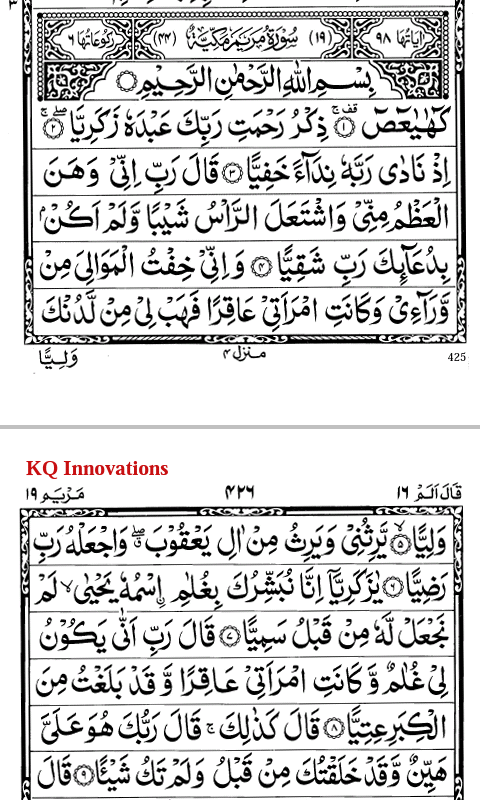 اٰیَاتُهَا ۹۸ (۱۹) سُوْرَةُ مَرْیَمَ مَكِّیَّةٌ (۴۴) رُكُوْعَاتُهَا ۶
بِسْمِ اللهِ الرَّحْمٰنِ الرَّحِیْمِ
كٓهٰیٰعٓصٓ ۚ قف ﴿۱﴾ ذِكْرُ رَحْمَتِ رَبِّكَ عَبْدَهٗ زَكَرِیَّا ۖۚ ﴿۲﴾
اِذْ نَادٰی رَبَّهٗ نِدَآءً خَفِیًّا ﴿۳﴾ قَالَ رَبِّ اِنِّیْ وَهَنَ
الْعَظْمُ مِنِّیْ وَاشْتَعَلَ الرَّاْسُ شَیْبًا وَّلَمْ اَكُنْۢ
بِدُعَآئِكَ رَبِّ شَقِیًّا ﴿۴﴾ وَاِنِّیْ خِفْتُ الْمَوَالِیَ مِنْ
وَّرَآءِیْ وَكَانَتِ امْرَاَتِیْ عَاقِرًا فَهَبْ لِیْ مِنْ لَّدُنْكَ
وَلِیًّا منزل ۴ 425
KQ Innovations
قَالَ اَلَمْ ۱۶ ۴۲۶ مَرْیَم ۱۹
وَلِیًّا ۙ ﴿۵﴾ یَّرِثُنِیْ وَیَرِثُ مِنْ اٰلِ یَعْقُوْبَ ۖۗ وَاجْعَلْهُ رَبِّ
رَضِیًّا ﴿۶﴾ یٰزَكَرِیَّاۤ اِنَّا نُبَشِّرُكَ بِغُلٰمِ ِۨاسْمُهٗ یَحْیٰی ۙ لَمْ
نَجْعَلْ لَّهٗ مِنْ قَبْلُ سَمِیًّا ﴿۷﴾ قَالَ رَبِّ اَنّٰی یَكُوْنُ
لِیْ غُلٰمٌ وَّكَانَتِ امْرَاَتِیْ عَاقِرًا وَّقَدْ بَلَغْتُ مِنَ
الْكِبَرِ عِتِیًّا ﴿۸﴾ قَالَ كَذٰلِكَ ۚ قَالَ رَبُّكَ هُوَ عَلَیَّ
هَیِّنٌ وَّقَدْ خَلَقْتُكَ مِنْ قَبْلُ وَلَمْ تَكُ شَیْئًا ﴿۹﴾ قَالَ